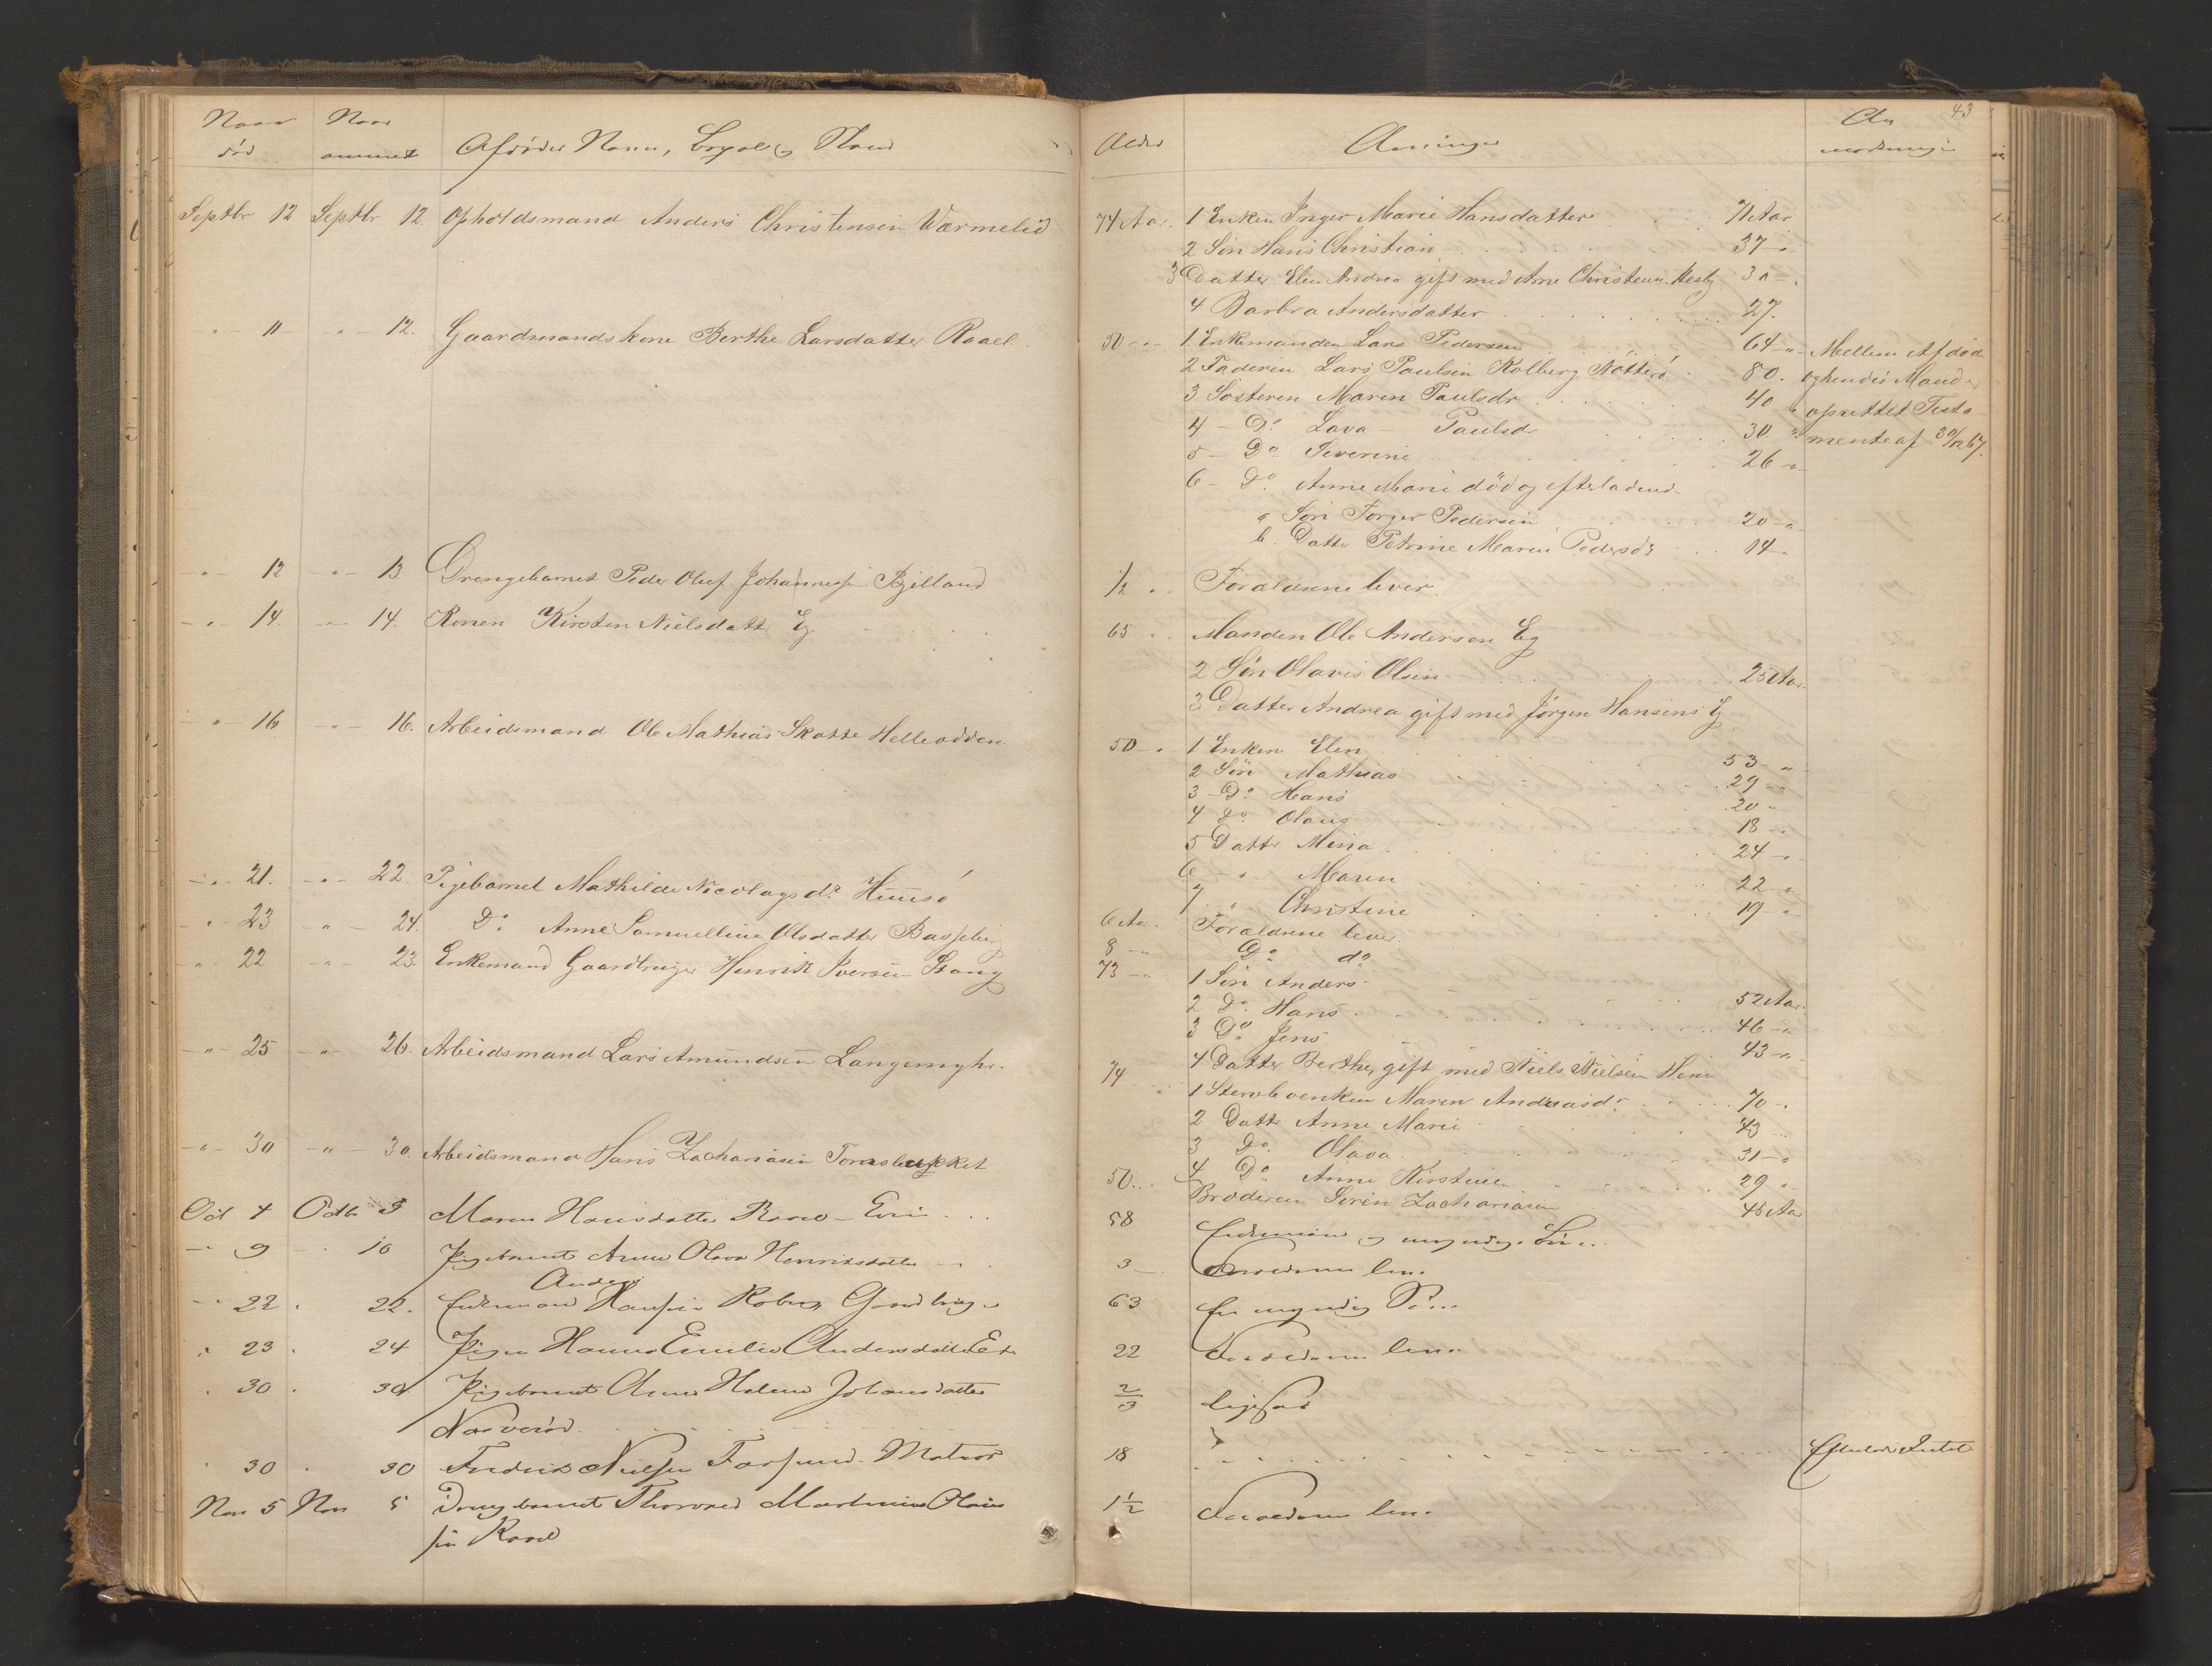 Naar død
Naar anmeldt
Afdødes Navn, Bopæl og Stand
Septbr 12 Septbr 12. Opholdsmand Anders Christensen Wærmelid
" 11 " 12. Gaardmandskone Berthe Larsdatter Raael.
" 12 " 13 Drengebarnet Peder Oluf Johannessen Bjelland
" 14. " 14. Konen Kirsten Nielsdatt Eg
" 16 " 16. Arbeidsmand Ole Mathias Skatte Helleodden
" 21. " 22. Pigebarnet Mathilde Nicolaysdr Huusø
" 23 " 24. Do Anne Samuelline Olsdatter Basseberg
" 22 " 23. Enkemand Gaardbruger Henrik Iversen Stang
" 25 " 26. Arbeidsmand Lars Amundsen Langemyhr.
" 30 " 30. Arbeidsmand Hans Zachariasen
Oct 4 Octb 5 Maren Hansdatter
" 9 " 10 Pigebarnet Anne Olava Henriksdatter
Anders
" 22 . 22. Enkemand Hansen Gaardbruger
" 23 . 24 Pigen Hanna Emilie Andersdatter Ek
" 30 . 30 Pigebarnet Anne Helene Johansdatter
Narverød
" 30 . 30 Fredrik Nielsen Farsund. Matros
Nov 5 Nov 5 Drengebarnet Thorvald Martinius Olaus
sen Raael
43
Alder
Arvinger
Anmærkninger
74 Aar. 1 Enken Inger Marie Hansdatter 71 Aar
2 Søn Hans Christian 37 "
3 Datter Elen Andrea gift med Arne Christensen Hesby 30 "
4 Barbra Andersdatter 27.
50 " 1. Enkemanden Lars Pedersen 64 " Mellem Afdøde
2 Faderen Lars Paulsen Kolberg Nøtterø 80. og hendes Mand er
3 Søsteren Maren Paulsdr 40 " oprettet Testa
4 - Do Lava - Paulsd 30 " mente af 30/12 67.
5 - Do Severine 26 "
6 - Do Anne Marie død og efterladend
a Søn Torger Pedersen 20 "
b. Datt Petrine Maren Pedersdr 14 "
1/2 " Forældrene lever.
65 " Manden Ole Andersen Eg
2 Søn Olavis Olsen 25 Aar.
3 Datter Andrea gift med Jørgen Hansens Eg
50 " 1 Enken Elen 53 "
2 Søn Mathias 29 "
3 Do Hans 20 "
4 Do Olaus 18 "
5 Datt Mina 24 "
6 " Maren 22 "
7 " Christine 19 "
6 Aar. Forældrene lever.
8 " Do do
73 " 1 Søn Anders 52 Aar
2 Do Hans 46 "
3 Do Jens 43 "
4 Datter Berthe, gift med Niels Nielsen Hem
74 " 1 Stervboenken Maren Andreasdr 70 "
2 Datt Anne Marie 43
3 Do Olava 31 "
4 Do Anne Kirstine 29 "
50 Broderen Søren Zachariasen 45 Aar
58 Enkemand og myndige Børn
3 Forældrene leve.
63 En myndig Søn
22 Forældrene leve
2/3 ligesaa
18 Efterlod Intet
1 1/2 Forældrene leve.